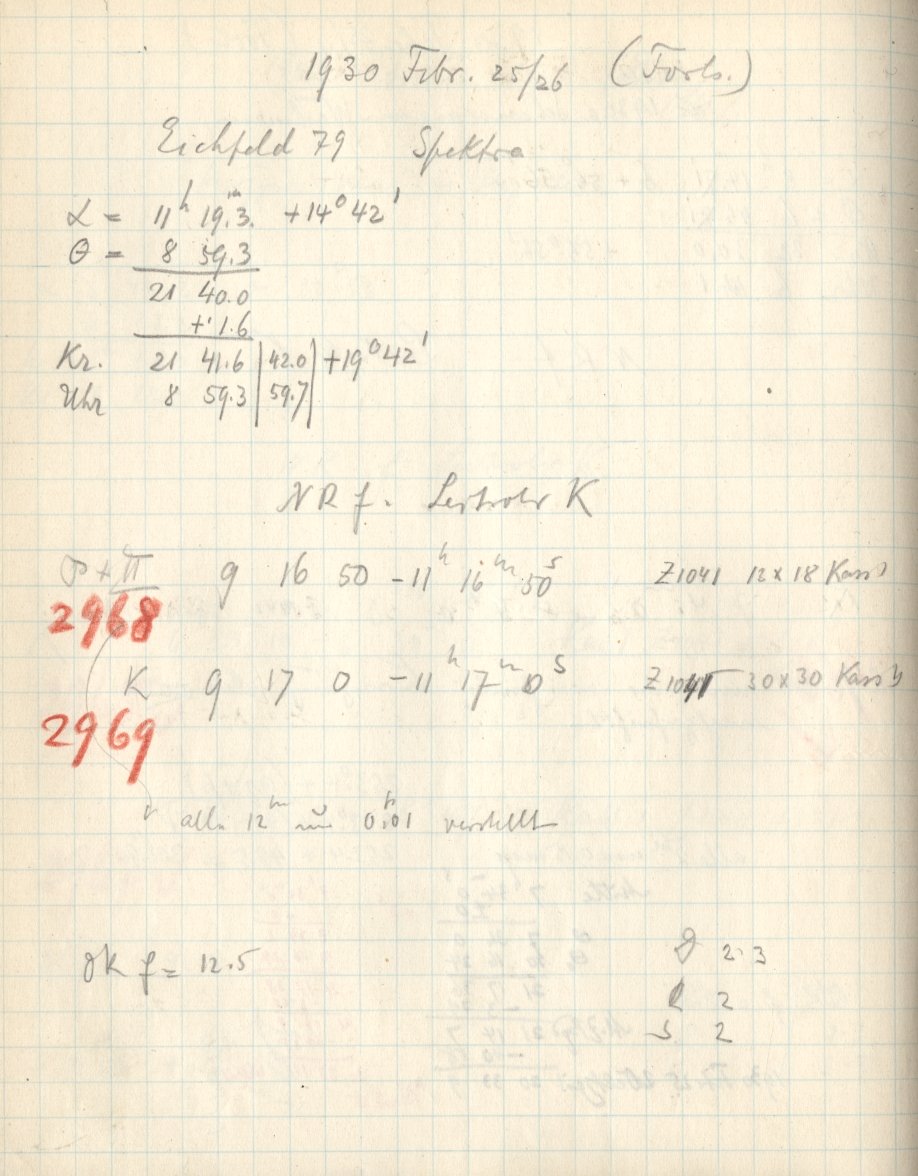 1930 Febr. 25/26 (Forts.)
Eichfeld 79 Spektra
α = 11h 19m.3. +14° 42'
θ = 8 59.3
21 40.0
+1.6
Kr. 21 41.6 | 42.0 | +19° 42'
Uhr 8 59.3 | 59.7 |
NR f. Leitrohr K
P + II 9 16 50 – 11h 16m 50s Z1041 12 x 18 Kass
2968
K 9 17 0 – 11h 17m 0s Z1041 30 x 30 Kass
2969
alle 12m um 0.01 verstellt
OK f = 12.5
2.3
R 2
S 2